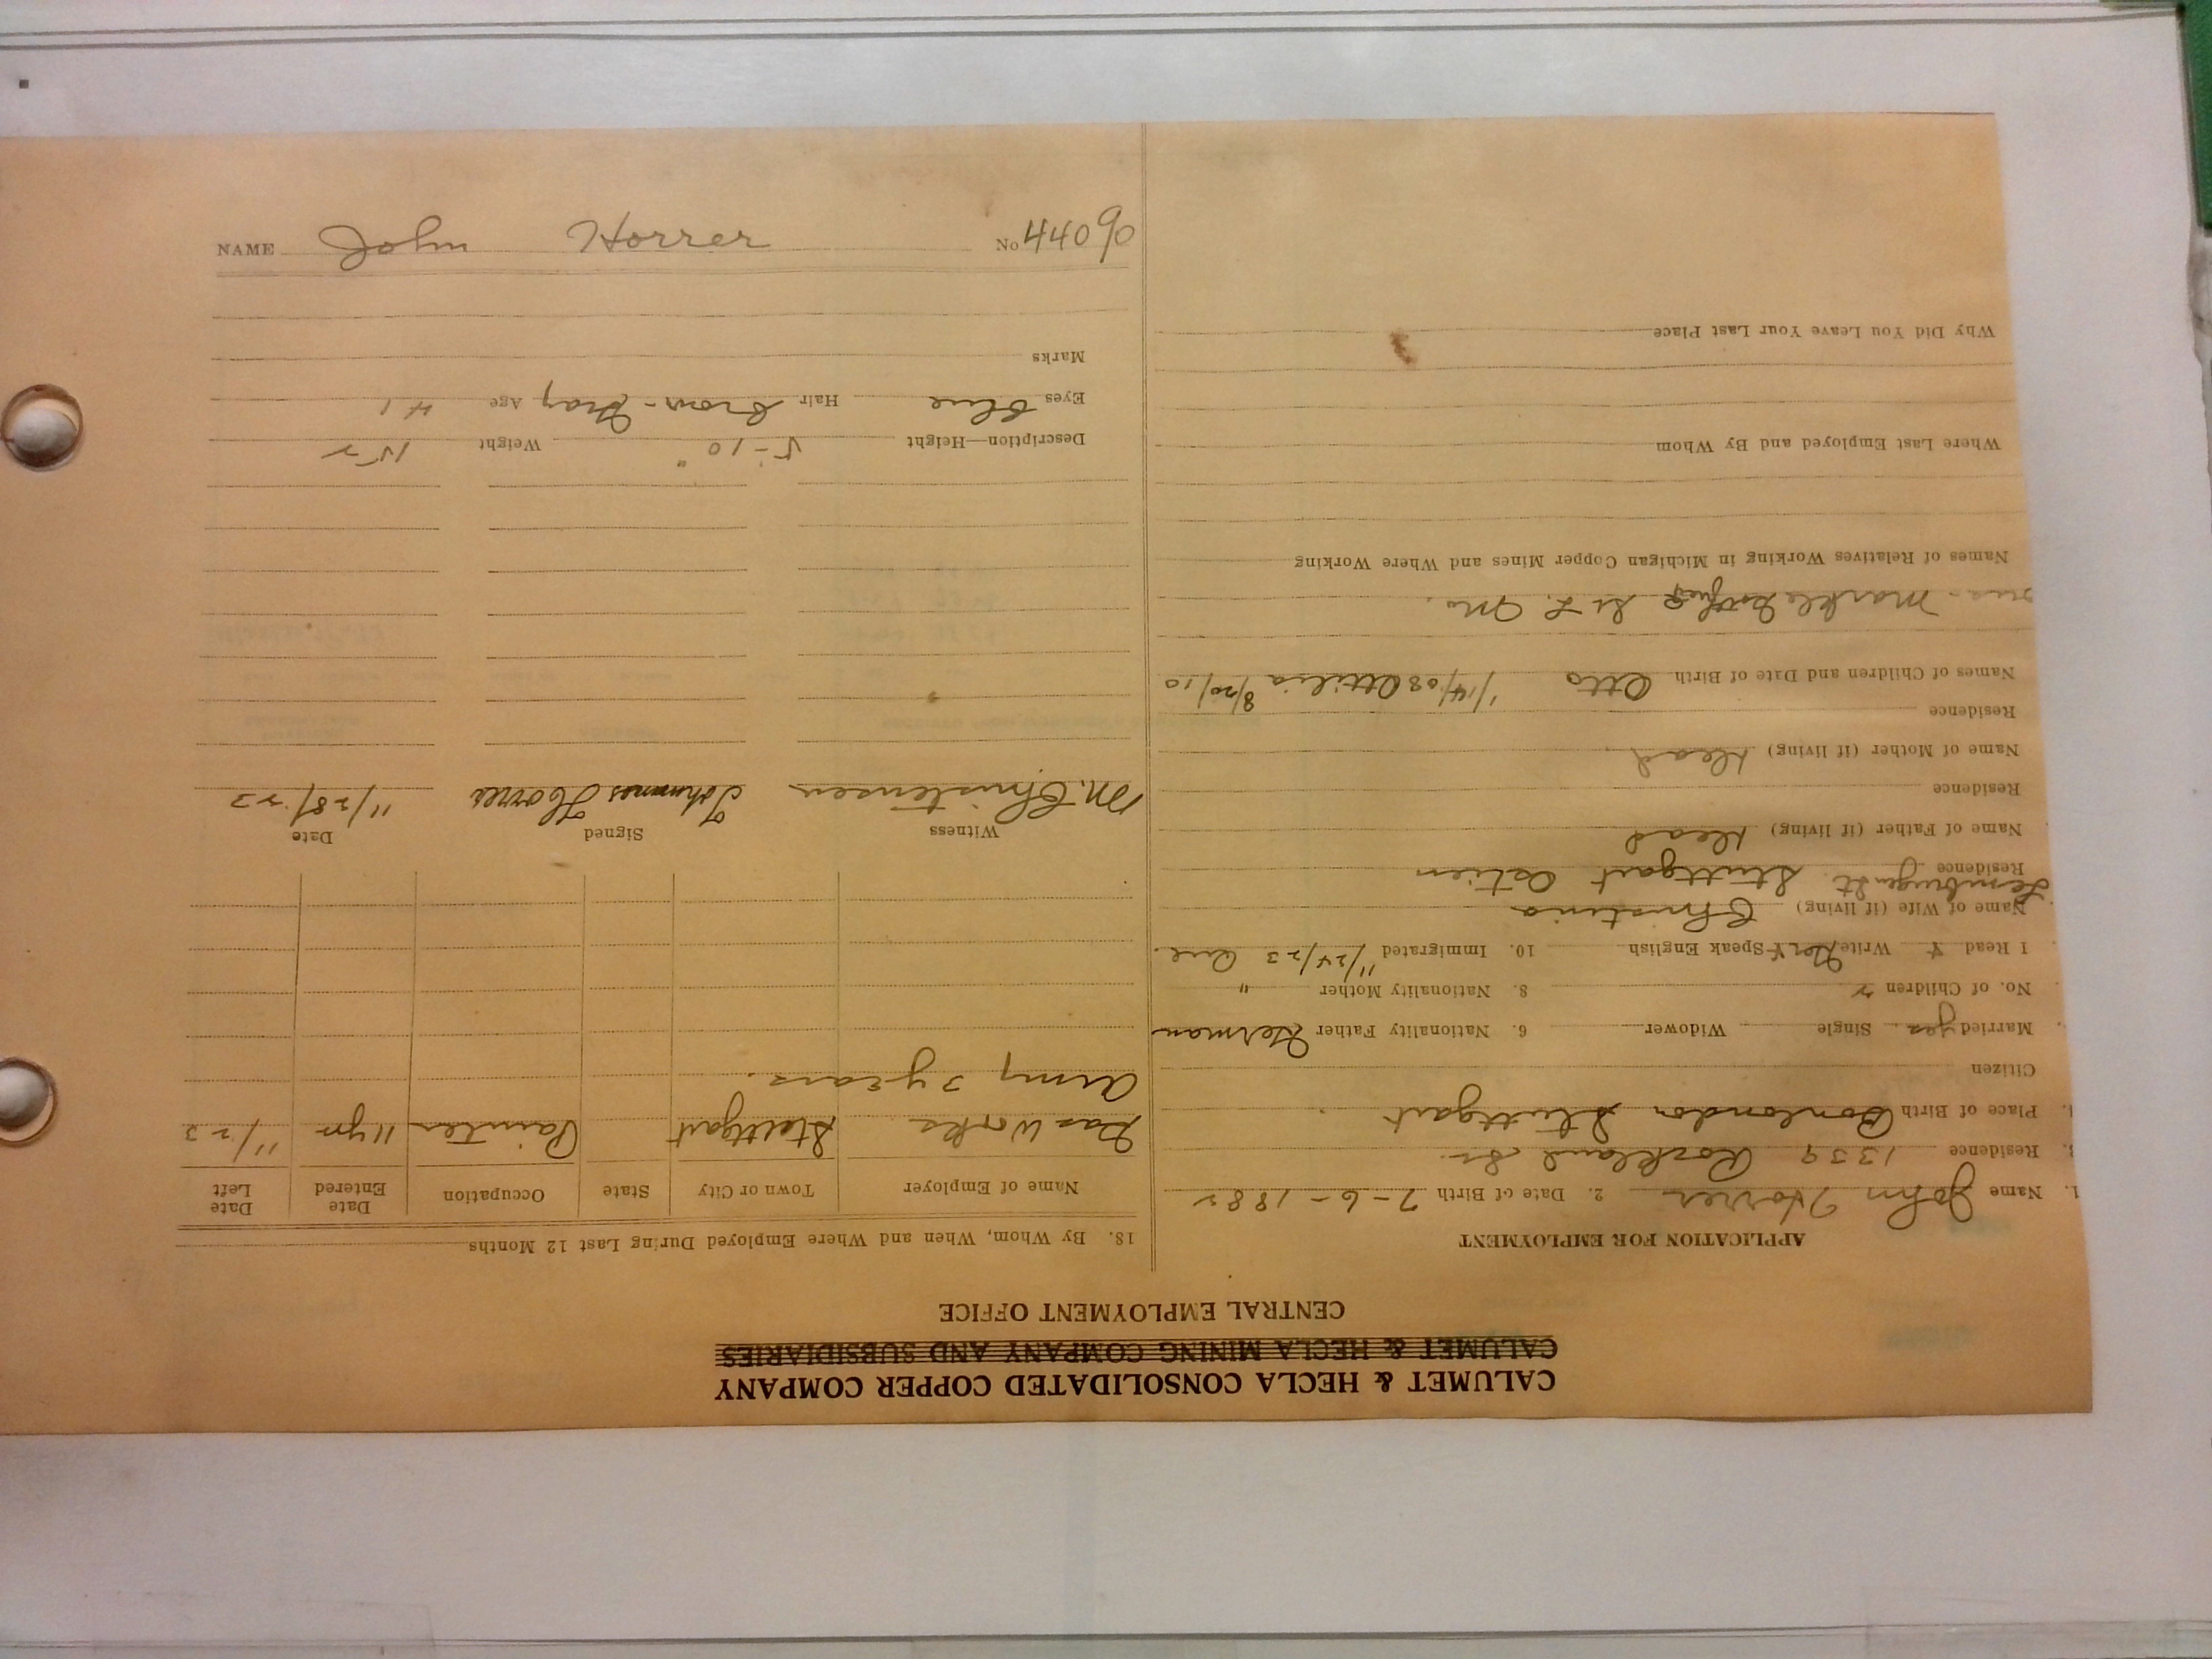 CALUMET & HECLA CONSOLIDATED COPPER COMPANY
CALUMET & HECLA MINING COMPANY AND SUBSIDIARIES
CENTRAL EMPLOYMENT OFFICE
APPLICATION FOR EMPLOYMENT
1. Name John Horrer 2. Date of Birth 7-6-1882
3. Residence 1339 Rockland St.
Place of Birth Stuttgart
Citizen
Married yes Single Widower 6. Nationality Father German
No. of Children 2 8. Nationality Mother "
I Read Y Write Ger Y Speak English 10. Immigrated 11/24/23
Name of Wife (if living) Christina
Residence Stuttgart
Name of Father (if living) Dead
Residence
Name of Mother (if living) Dead
Residence
Names of Children and Date of Birth Otto 1/14/08 Ottilia 8/20/10
Names of Relatives Working in Michigan Copper Mines and Where Working
Where Last Employed and By Whom
Why Did You Leave Your Last Place
18. By Whom, When and Where Employed During Last 12 Months
Name of Employer Town or City State Occupation Date Entered Date Left
Gas Works Stuttgart Painter 11 yrs 11/23
Army 3 years.
Witness Signed Date
M. Christensen Johannes Horrer 11/28/23
Description—Height 5'-10" Weight 152
Eyes Blue Hair Brown-Gray Age 41
Marks
NAME John Horrer No 44090